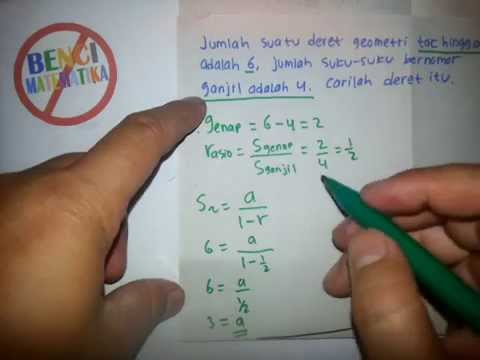 BENCI
MATEMATIKA
Jumlah suatu deret geometri tac hingga
adalah 6, jumlah suku-suku bernomor
ganjil adalah 4. Carilah deret itu.
genap = 6-4 = 2
rasio = Sgenap / Sganjil = 2/4 = 1/2
S~ = a / 1-r
6 = a / 1-1/2
6 = a / 1/2
3 = a